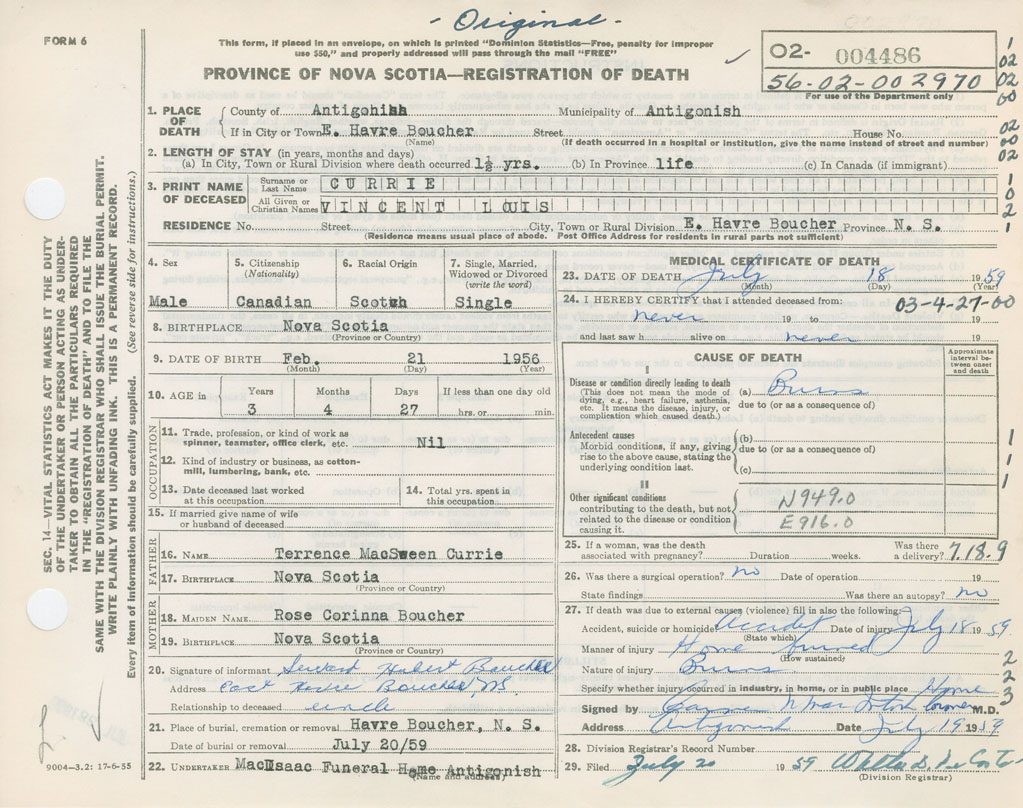 - Original -
FORM 6
This form, if placed in an envelope, on which is printed "Dominion Statistics—Free, penalty for improper
use $50," and properly addressed will pass through the mail "FREE"
PROVINCE OF NOVA SCOTIA—REGISTRATION OF DEATH
02- 004486
56-02-002970
For use of the Department only
1
02
02
00
1. PLACE OF DEATH County of Antigonish Municipality of Antigonish
If in City or Town E. Havre Boucher Street House No.
(Name) (If death occurred in a hospital or institution, give the name instead of street and number)
02
00
02
2. LENGTH OF STAY (in years, months and days)
(a) In City, Town or Rural Division where death occurred 1½ yrs. (b) In Province life (c) In Canada (if immigrant)
3. PRINT NAME OF DECEASED Surname or Last Name CURRIE
All Given or Christian Names VINCENT LOUIS
1
0
2
1
RESIDENCE No. Street City, Town or Rural Division E. Havre Boucher Province N. S.
(Residence means usual place of abode. Post Office Address for residents in rural parts not sufficient)
4. Sex 5. Citizenship (Nationality) 6. Racial Origin 7. Single, Married, Widowed or Divorced (write the word)
Male Canadian Scotch Single
8. BIRTHPLACE Nova Scotia
(Province or Country)
9. DATE OF BIRTH Feb. 21 1956
(Month) (Day) (Year)
10. AGE in Years Months Days If less than one day old
3 4 27 hrs. or min.
OCCUPATION
11. Trade, profession, or kind of work as
spinner, teamster, office clerk, etc. Nil
12. Kind of industry or business, as cotton-
mill, lumbering, bank, etc.
13. Date deceased last worked
at this occupation
14. Total yrs. spent in
this occupation
15. If married give name of wife
or husband of deceased
FATHER
16. NAME Terrence MacSween Currie
17. BIRTHPLACE Nova Scotia
(Province or Country)
MOTHER
18. MAIDEN NAME Rose Corinna Boucher
19. BIRTHPLACE Nova Scotia
(Province or Country)
20. Signature of informant Hubert Boucher
Address East Havre Boucher, NS.
Relationship to deceased uncle
21. Place of burial, cremation or removal Havre Boucher, N. S.
Date of burial or removal July 20/59
22. UNDERTAKER MacIsaac Funeral Home Antigonish
(Name and address)
MEDICAL CERTIFICATE OF DEATH
23. DATE OF DEATH July 18 1959
(Month) (Day) (Year)
24. I HEREBY CERTIFY that I attended deceased from:
03-4-27-00
never 19 to 19
and last saw h alive on never 19
CAUSE OF DEATH
Approximate
interval be-
tween onset
and death
I
Disease or condition directly leading to death
(This does not mean the mode of
dying, e.g., heart failure, asthenia,
etc. It means the disease, injury, or
complication which caused death.)
(a) Burns
due to (or as a consequence of)
Antecedent causes
Morbid conditions, if any, giving
rise to the above cause, stating the
underlying condition last.
(b)
due to (or as a consequence of)
(c)
1
1
1
II
Other significant conditions
contributing to the death, but not
related to the disease or condition
causing it.
N949.0
E916.0
25. If a woman, was the death
associated with pregnancy? Duration weeks. Was there
a delivery?
7.18.9
26. Was there a surgical operation? no Date of operation 19
State findings Was there an autopsy? no
27. If death was due to external causes (violence) fill in also the following:
Accident, suicide or homicide Accident Date of injury July 18 1959
(State which)
Manner of injury Home burned
(How sustained)
Nature of injury Burns
Specify whether injury occurred in industry, in home, or in public place Home
2
2
3
Signed by Coroner M.D.
Address Antigonish Date July 19 1959
28. Division Registrar's Record Number
29. Filed July 20 1959
(Division Registrar)
SEC. 14—VITAL STATISTICS ACT MAKES IT THE DUTY
OF THE UNDERTAKER OR PERSON ACTING AS UNDER-
TAKER TO OBTAIN ALL THE PARTICULARS REQUIRED
IN THE "REGISTRATION OF DEATH" AND TO FILE THE
SAME WITH THE DIVISION REGISTRAR WHO SHALL ISSUE THE BURIAL PERMIT.
WRITE PLAINLY WITH UNFADING INK. THIS IS A PERMANENT RECORD.
Every item of Information should be carefully supplied. (See reverse side for instructions.)
9004-3.2: 17-6-55